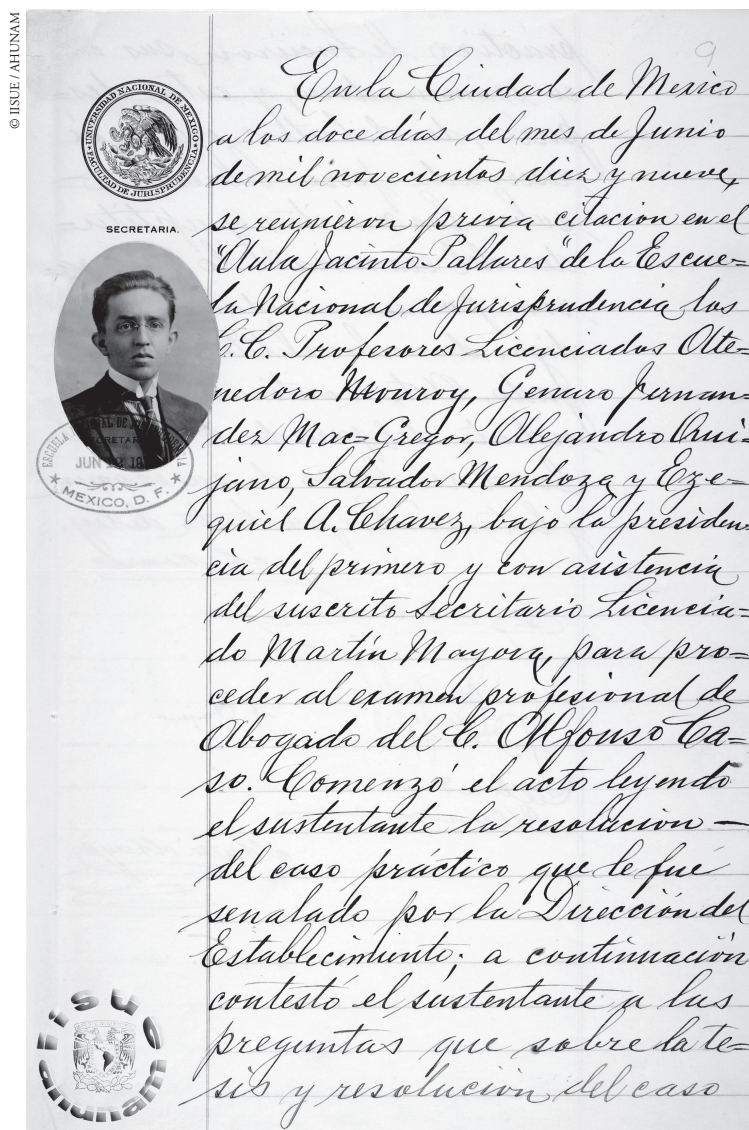 © IISUE / AHUNAM
9
UNIVERSIDAD NACIONAL DE MEXICO
FACULTAD DE JURISPRUDENCIA
SECRETARIA.
En la Ciudad de Mexico
a los doce días del mes de Junio
de mil novecientos diez y nueve,
se reunieron previa citacion en el
"Aula Jacinto Pallares" de la Escue=
la Nacional de Jurisprudencia los
C.C. Profesores Licenciados Ate-
nedoro Monroy, Genaro Fernan=
dez Mac=Gregor, Alejandro Qui=
jano, Salvador Mendoza y Eze=
quiel A. Chavez, bajo la presiden=
cia del primero y con asistencia
del suscrito Secritario Licencia=
do Martín Mayora, para pro=
ceder al examen profesional de
Abogado del C. Alfonso Ca=
so. Comenzó el acto leyendo
el sustentante la resolucion —
del caso práctico que le fué
senalado por la Dirección del
Establecimiento; a continuación
contestó el sustentante a las
preguntas que sobre la te=
sis y resolución del caso
ESCUELA
SECRETARIA
JUN 12
MEXICO, D. F.
iisue
ahunam